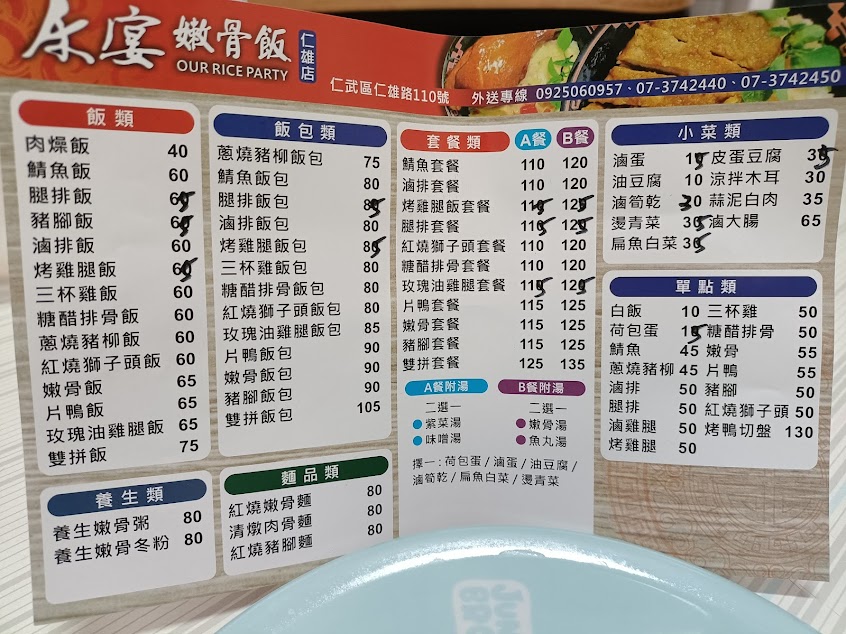 永宴 嫩骨飯 仁雄店
OUR RICE PARTY
仁武區仁雄路110號 外送專線 0925060957、07-3742440、07-3742450
飯類
肉燥飯 40
鯖魚飯 60
腿排飯 65
豬腳飯 65
滷排飯 60
烤雞腿飯 65
三杯雞飯 60
糖醋排骨飯 60
蔥燒豬柳飯 60
紅燒獅子頭飯 60
嫩骨飯 65
片鴨飯 65
玫瑰油雞腿飯 65
雙拼飯 75
養生類
養生嫩骨粥 80
養生嫩骨冬粉 80
飯包類
蔥燒豬柳飯包 75
鯖魚飯包 80
腿排飯包 85
滷排飯包 80
烤雞腿飯包 85
三杯雞飯包 80
糖醋排骨飯包 80
紅燒獅子頭飯包 80
玫瑰油雞腿飯包 85
片鴨飯包 90
嫩骨飯包 90
豬腳飯包 90
雙拼飯包 105
麵品類
紅燒嫩骨麵 80
清燉肉骨麵 80
紅燒豬腳麵 80
套餐類 A餐 B餐
鯖魚套餐 110 120
滷排套餐 110 120
烤雞腿飯套餐 115 125
腿排套餐 115 125
紅燒獅子頭套餐 110 120
糖醋排骨套餐 110 120
玫瑰油雞腿套餐 115 125
片鴨套餐 115 125
嫩骨套餐 115 125
豬腳套餐 115 125
雙拼套餐 125 135
A餐附湯 B餐附湯
二選一 二選一
紫菜湯 嫩骨湯
味噌湯 魚丸湯
擇一:荷包蛋/滷蛋/油豆腐/
滷筍乾/扁魚白菜/燙青菜
小菜類
滷蛋 15 皮蛋豆腐 35
油豆腐 10 涼拌木耳 30
滷筍乾 30 蒜泥白肉 35
燙青菜 35 滷大腸 65
扁魚白菜 35
單點類
白飯 10 三杯雞 50
荷包蛋 15 糖醋排骨 50
鯖魚 45 嫩骨 55
蔥燒豬柳 45 片鴨 55
滷排 50 豬腳 50
腿排 50 紅燒獅子頭 50
滷雞腿 50 烤鴨切盤 130
烤雞腿 50